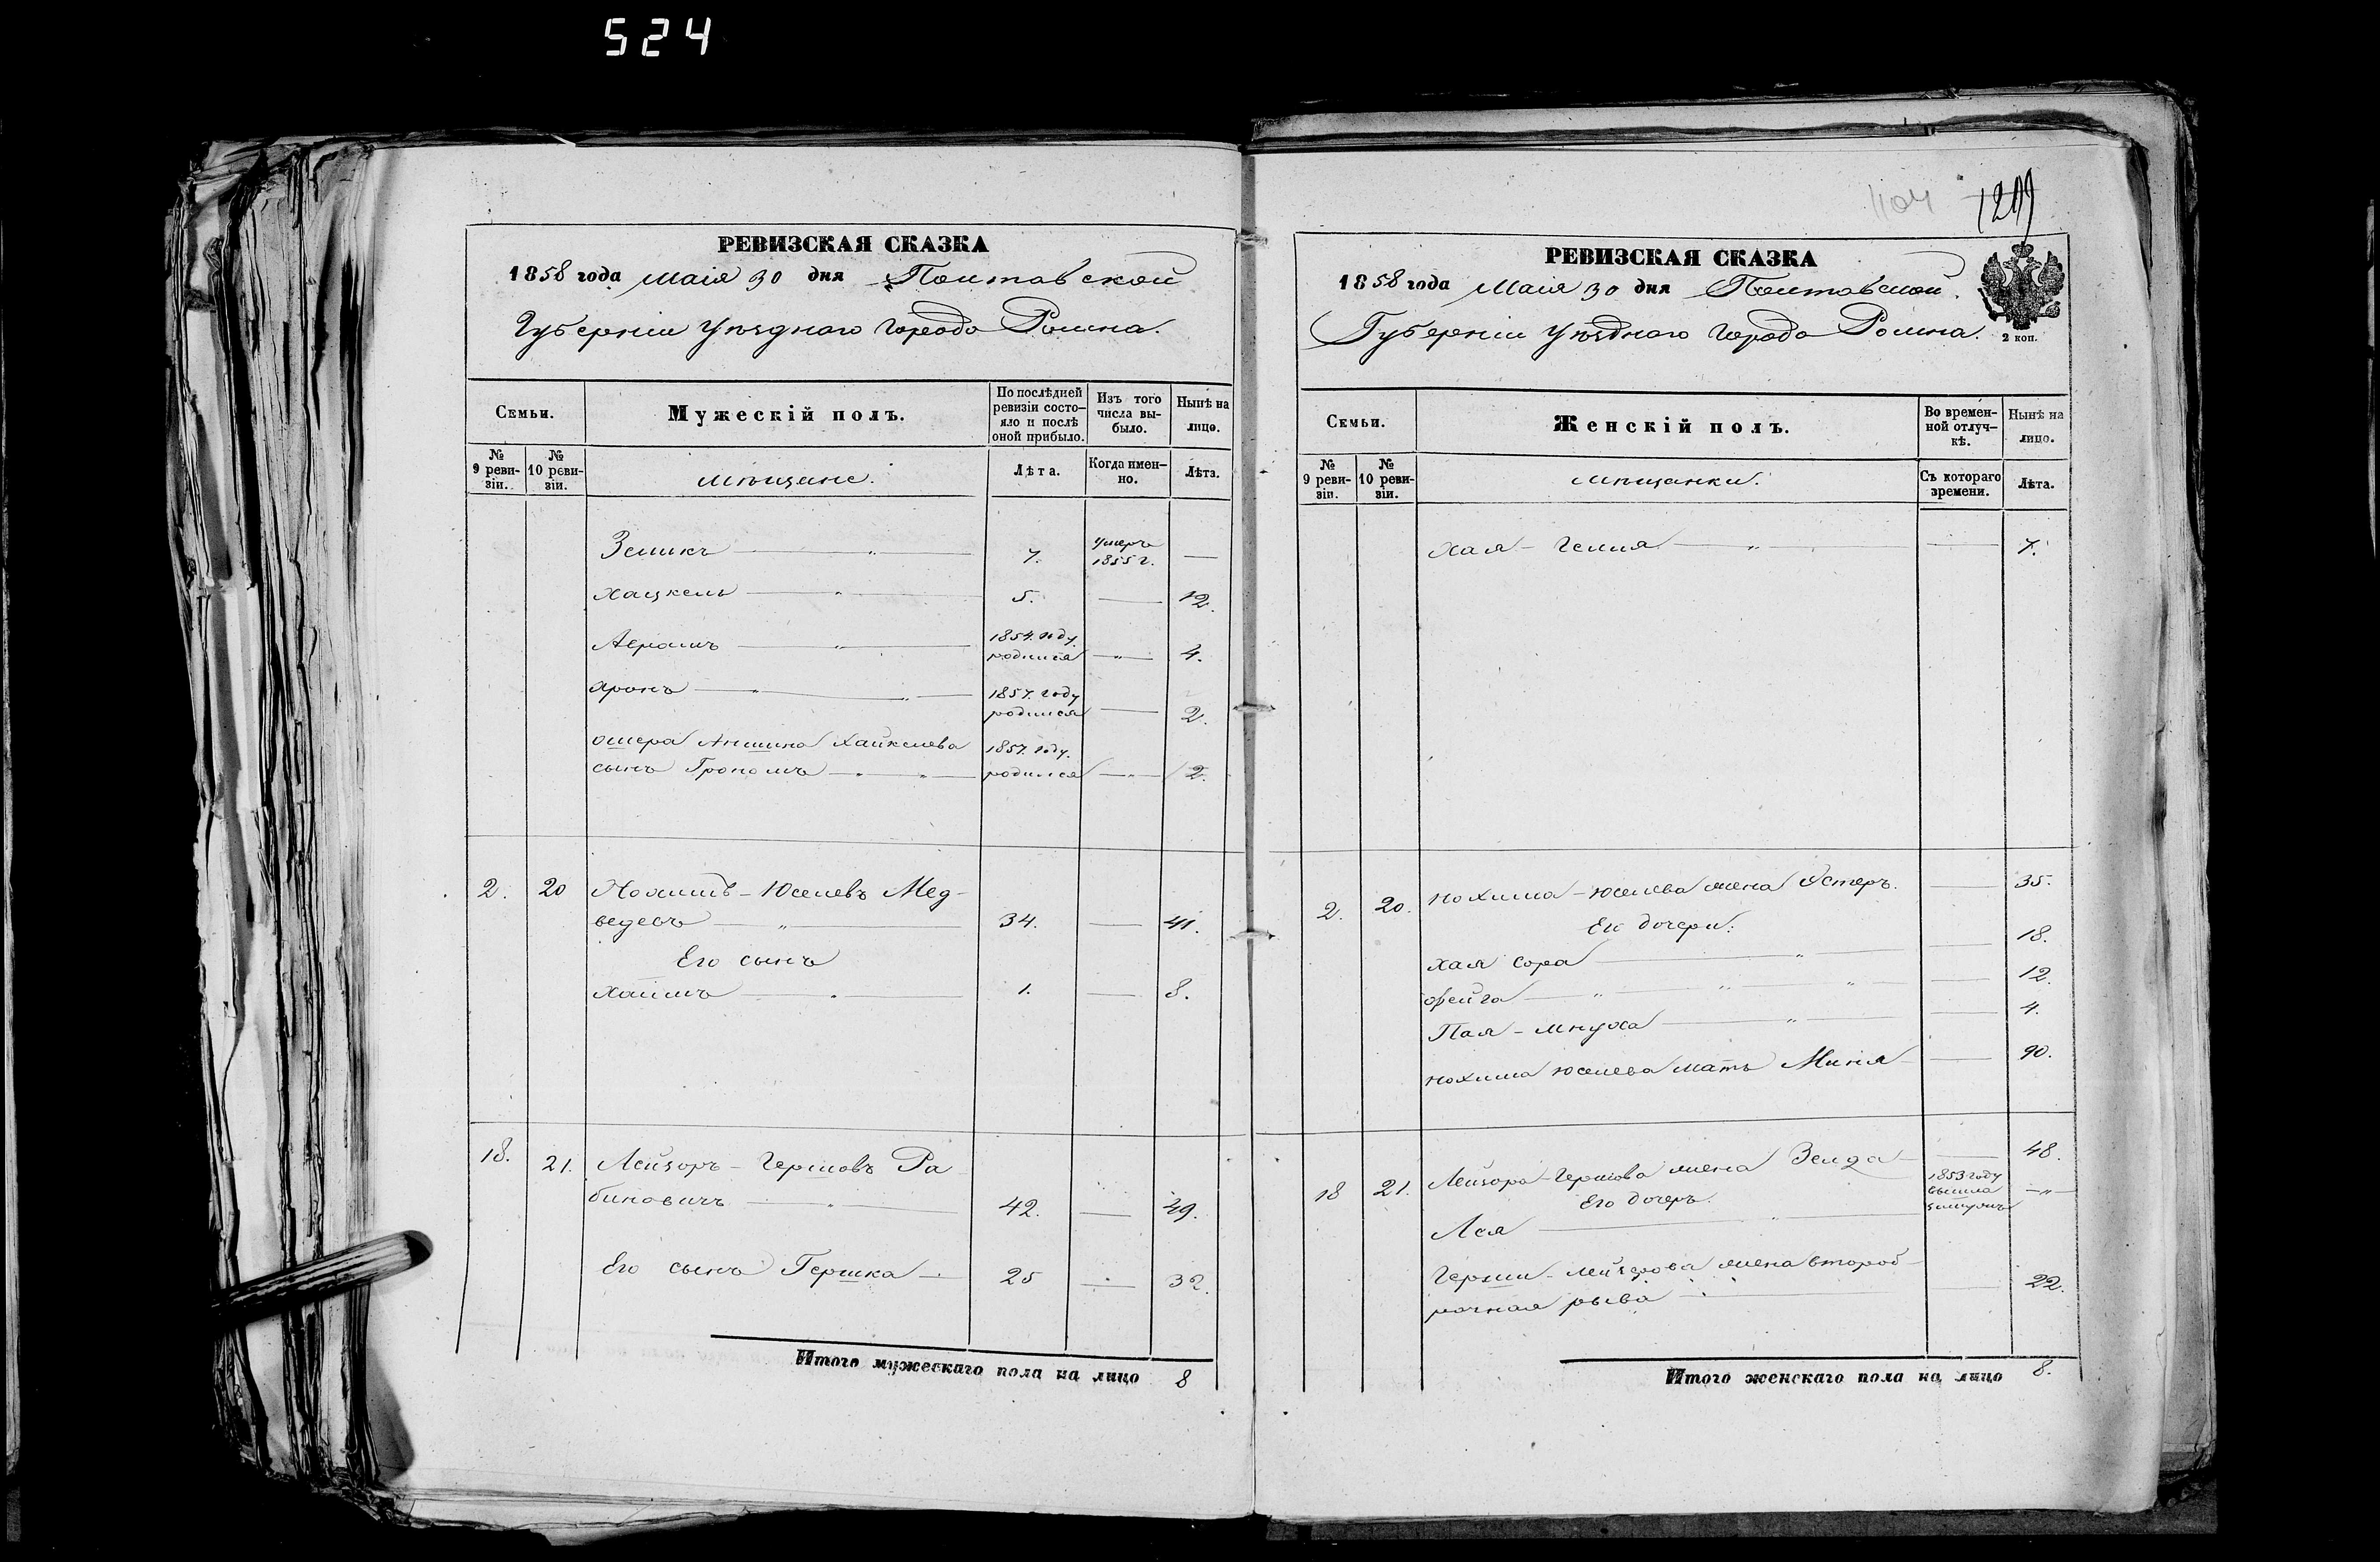 524
РЕВИЗСКАЯ СКАЗКА
1858 года Маія 30 дня Полтавской
Губерніи Уѣзднаго Города Ромна.
Семьи.
Мужескій полъ.
По послѣдней ревизіи состо-
яло и послѣ оной прибыло.
Изъ того числа вы-
было.
Нынѣ на лицо.
№ 9 реви-
зіи.
№ 10 реви-
зіи.
мѣщане.
Лѣта.
Когда имен-
но.
Лѣта.
Зеликъ 7. умеръ 1855 г. —
Хацкель 5. — 12.
Абрамъ 1854. году родился — 4.
Аронъ 1857. году родился — 2.
Ошера Аншина Хайкелева
сынъ Грономъ 1857. году родился — 2.
2. 20 Нохимъ - Юселевъ Мед-
ведевъ 34. — 41.
Его сынъ
Хаимъ 1. — 8.
18. 21. Лейзоръ - Гершовъ Ра
биновичъ 42. — 49.
Его сынъ Гершка 25 — 32.
Итого мужескаго пола на лицо 8
1104 1209
РЕВИЗСКАЯ СКАЗКА
1858 года Маія 30 дня Полтавской
Губерніи Уѣзднаго Города Ромна.
2 коп.
Семьи.
Женскій полъ.
Во времен-
ной отлуч-
кѣ.
Нынѣ на лицо.
№ 9 реви-
зіи.
№ 10 реви-
зіи.
мѣщанки.
Съ котораго времени.
Лѣта.
Хая - — 7.
2. 20. Нохима - Юселева жена Эстеръ. — 35.
Его дочери:
Хая Сора — 18.
Фейга — 12.
Пая - Мнуха — 4.
Нохима Юселева мать Миня — 90.
18 21. Лейзора - Гершова жена Зелда — 48.
Его дочеръ.
Лея 1853 году вышла замужъ —
Герши - Лейзерова жена второб-
рачная рыва — 22.
Итого женскаго пола на лицо 8.